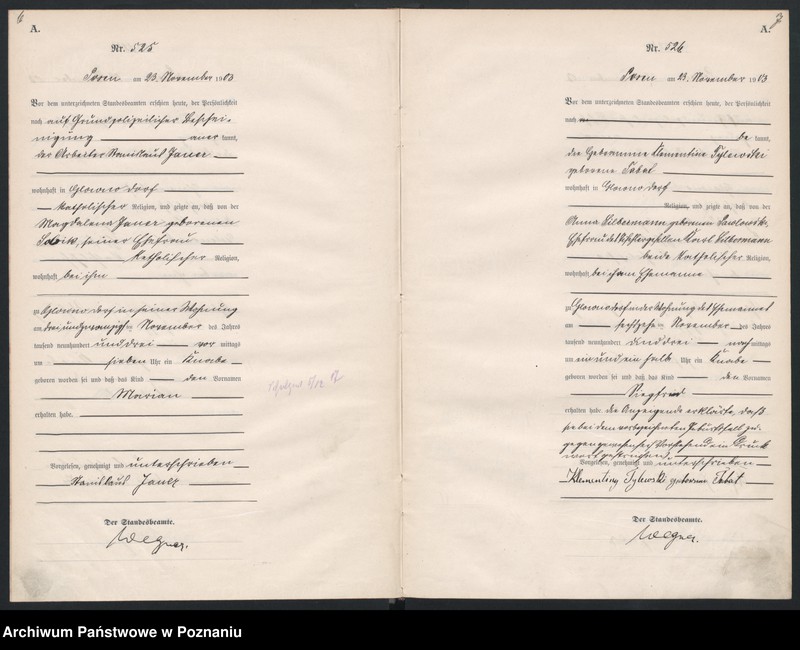 A.
Nr. 525
am 23. November 1903
Vor dem unterzeichneten Standesbeamten erschien heute, der Persönlichkeit
nach auf Grund polizeilicher Beschei-
nigung anerkannt,
der Arbeiter Stanislaus Janez
wohnhaft in Glowno Dorf
katholischer Religion, und zeigte an, daß von der
Magdalena Janez geborenen
seiner Ehefrau
katholischer Religion,
wohnhaft bei ihm
zu Glowno Dorf in seiner Wohnung
am dreiundzwanzigsten November des Jahres
tausend neunhundert und drei vormittags
um sieben Uhr ein Knabe
geboren worden sei und daß das Kind den Vornamen
Marian
erhalten habe.
Vorgelesen, genehmigt und unterschrieben
Stanislaus Janez
Der Standesbeamte.
Wegner.
A.
Nr. 526
am 23. November 1903
Vor dem unterzeichneten Standesbeamten erschien heute, der Persönlichkeit
nach
bekannt,
die Hebamme Klementine Tylewski
geborene Tabat
wohnhaft in Glowno Dorf
Religion, und zeigte an, daß von der
Anna Silbermann geborenen Pawlowski,
Ehefrau des Tischlergesellen Karl Silbermann
beide katholischer Religion,
wohnhaft bei ihrem Ehemanne
zu Glowno Dorf in der Wohnung des Ehemannes
am sechszehnten November des Jahres
tausend neunhundert und drei nachmittags
um ein und ein halb Uhr ein Knabe
geboren worden sei und daß das Kind den Vornamen
Siegfried
erhalten habe. Die Anzeigende erklärte, daß
sie bei dem vorbezeichneten Geburtsfall zu-
gegen gewesen sei. Vorstehend ein Druck
wort gestrichen.
Vorgelesen, genehmigt und unterschrieben
Klementine Tylewski geborene Tabat
Der Standesbeamte.
Wegner.
Archiwum Państwowe w Poznaniu